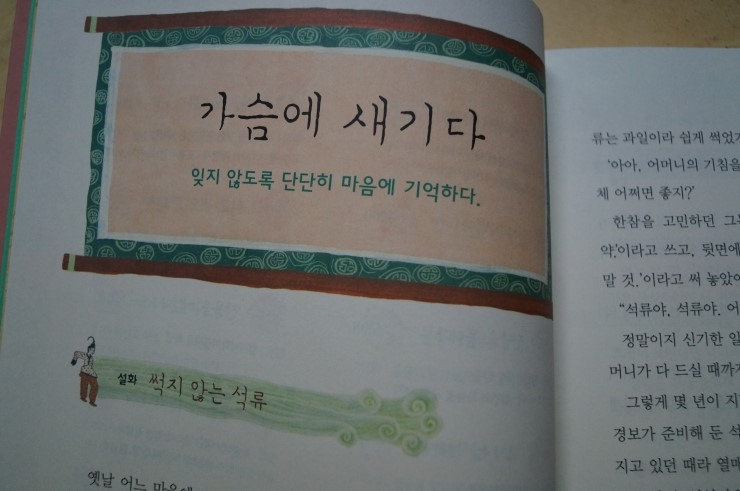 가슴에 새기다
잊지 않도록 단단히 마음에 기억하다.
설화 썩지 않는 석류
옛날 어느 마을에
류는 과일이라 쉽게 썩었
'아아, 어머니의 기침을
체 어쩌면 좋지?'
한참을 고민하던 그
약'이라고 쓰고, 뒷면에
말 것.'이라고 써 놓았
"석류야, 석류야. 어
정말이지 신기한 일
머니가 다 드실 때까
그렇게 몇 년이 지
경보가 준비해 둔 석
지고 있던 때라 열매